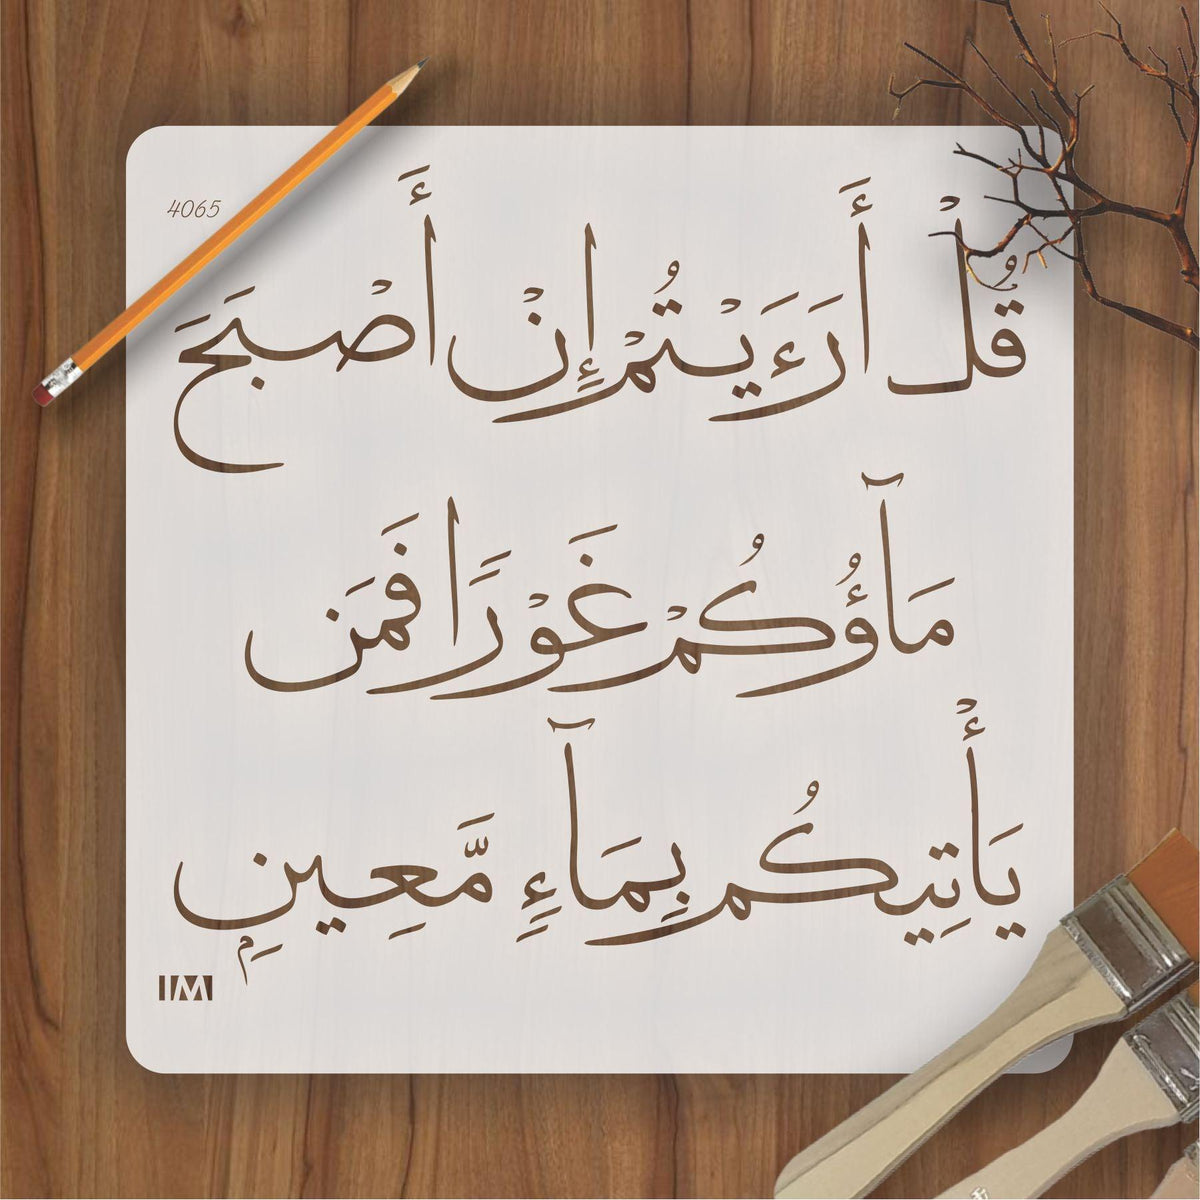 4065
قُلْ أَرَءَيْتُمْ إِنْ أَصْبَحَ
مَآؤُكُمْ غَوْرًا فَمَن
يَأْتِيكُم بِمَآءٍ مَّعِينٍۭ
IM